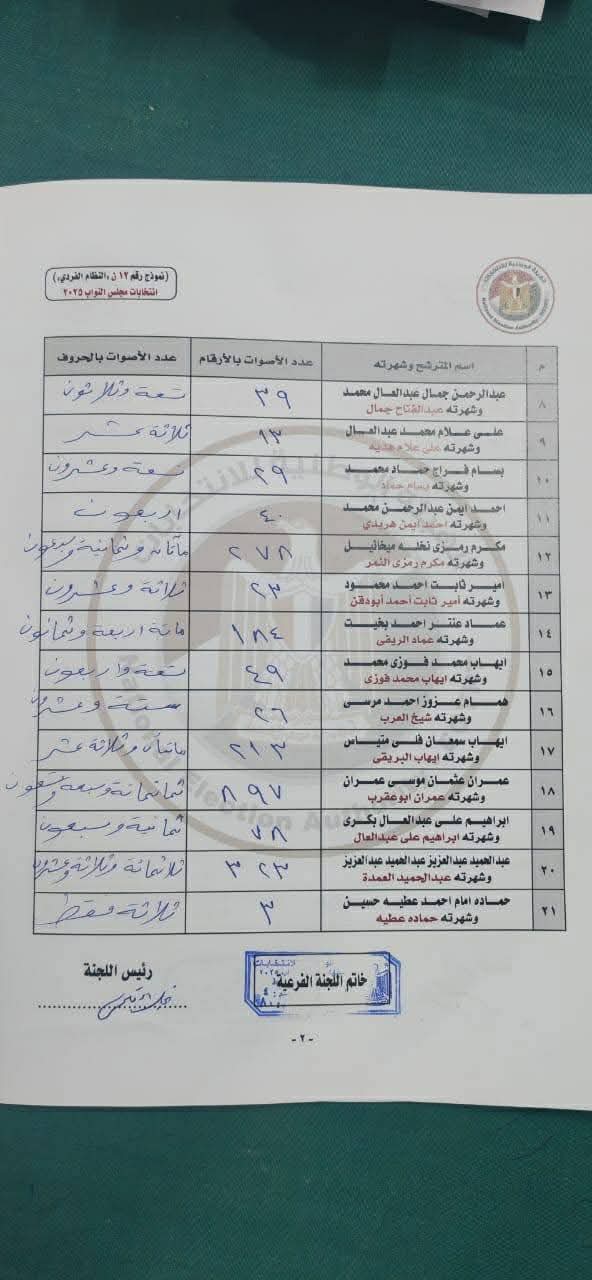 (نموذج رقم ١٢ ن، النظام الفردي،)
انتخابات مجلس النواب ٢٠٢٥
م اسم المترشح وشهرته عدد الأصوات بالأرقام عدد الأصوات بالحروف
٨ عبدالرحمن جمال عبدالعال محمد ٣٩ تسعة وثلاثون
وشهرته عبدالفتاح جمال
٩ على علام محمد عبدالعال ١٣ ثلاثة عشر
وشهرته على علام هديه
١٠ بسام فراج حماد محمد ٢٩ تسعة وعشرون
وشهرته بسام حماد
١١ احمد ايمن عبدالرحمن محمد ٤٠ اربعون
وشهرته احمد ايمن هريدي
١٢ مكرم رمزى نخله ميخائيل ٢٧٨ مأتان وثمانية وسبعون
وشهرته مكرم رمزى النمر
١٣ أمير ثابت احمد محمود ٢٣ ثلاثة وعشرون
وشهرته أمير ثابت أحمد أبودقن
١٤ عماد عنتر احمد بخيت ١٨٤ مائة اربعة وثمانون
وشهرته عماد الريفى
١٥ ايهاب محمد فوزى محمد ٤٩ تسعة واربعون
وشهرته ايهاب محمد فوزى
١٦ همام عزوز احمد مرسى ٢٦ ستة وعشرون
وشهرته شيخ العرب
١٧ ايهاب سمعان فلى متياس ٢١٣ مائتان وثلاثة عشر
وشهرته ايهاب البريقى
١٨ عمران عثمان موسى عمران ٨٩٧ ثمانمائة وسبعة وتسعون
وشهرته عمران ابوعقرب
١٩ ابراهيم على عبدالعال بكرى ٧٨ ثمانية وسبعون
وشهرته ابراهيم على عبدالعال
٢٠ عبدالحميد عبدالعزيز عبدالحميد عبدالعزيز ٣٢٣ ثلاثمائة وثلاثة وعشرون
وشهرته عبدالحميد العمدة
٢١ حماده امام احمد عطيه حسين ٣ ثلاثة فقط
وشهرته حماده عطيه
خاتم اللجنة الفرعية
رئيس اللجنة
-٢-